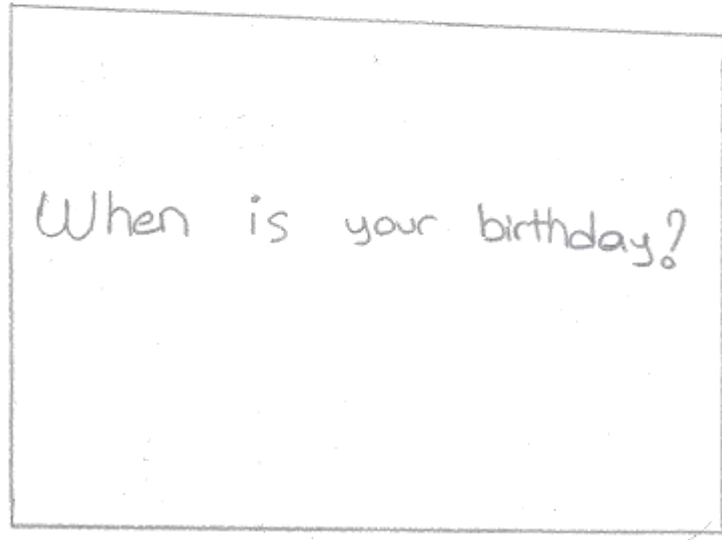 When is your birthday?